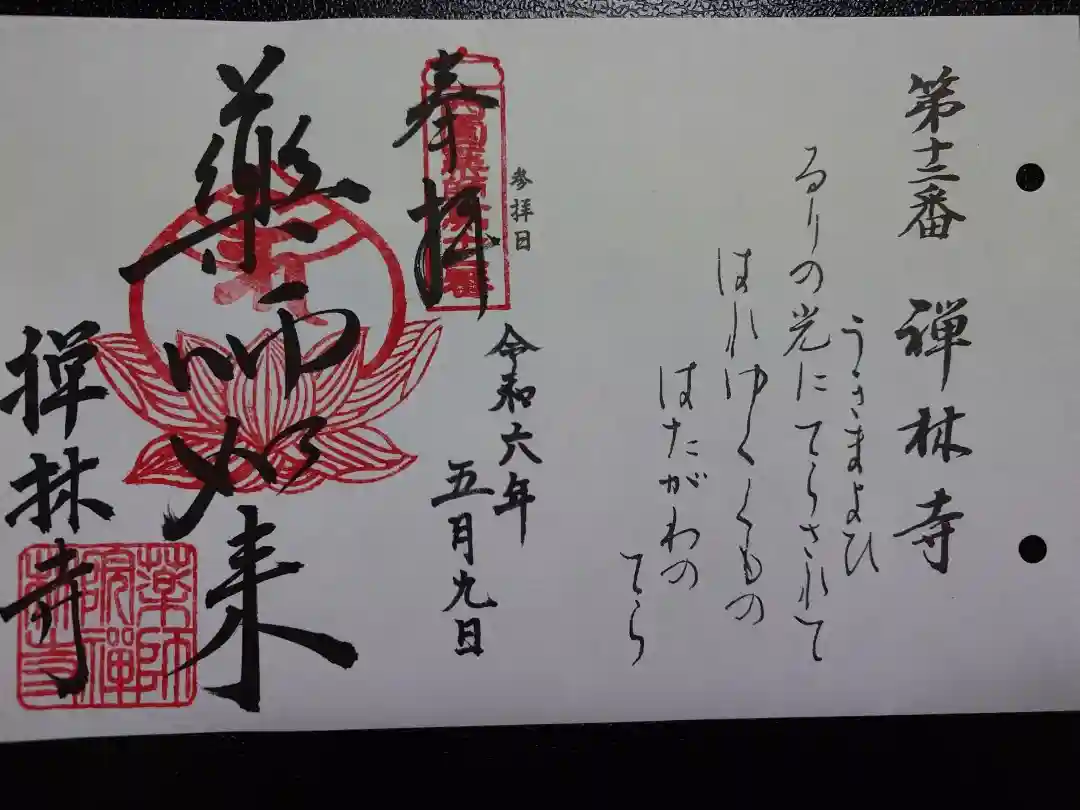 第十二番 禅林寺
うきまよひ
るりの光にてらされて
はれゆくくもの
はたがわの
てら
奉拝
参拝日
令和六年
五月九日
薬師如来
禅林寺